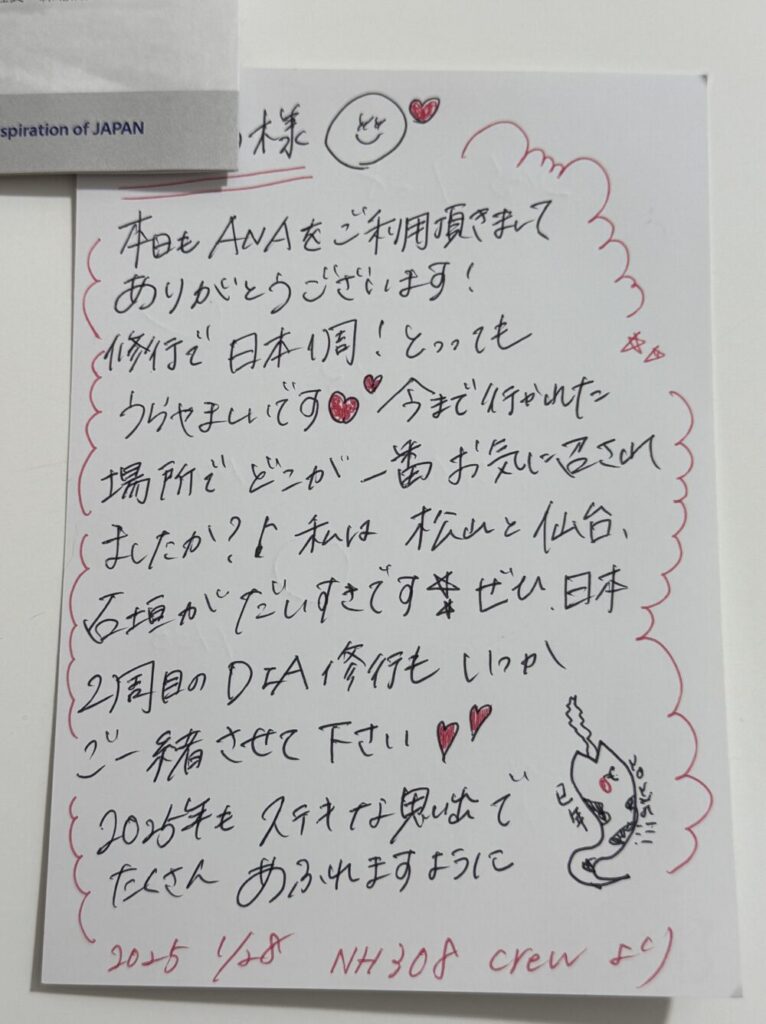 spiration of JAPAN
様
本日も ANAを ご利用頂きまして
ありがとうございます！
修行で 日本1周！とっっても
うらやましいです 今まで行かれた
場所で どこが 一番 お気に召され
ましたか？♪ 私は 松山と 仙台、
石垣が だいすきです ぜひ、日本
2周目の DIA修行も いつか
ご一緒させて下さい
2025年も ステキな思い出で
たくさん あふれますように
巳年
2025 1/28 NH308 crew より